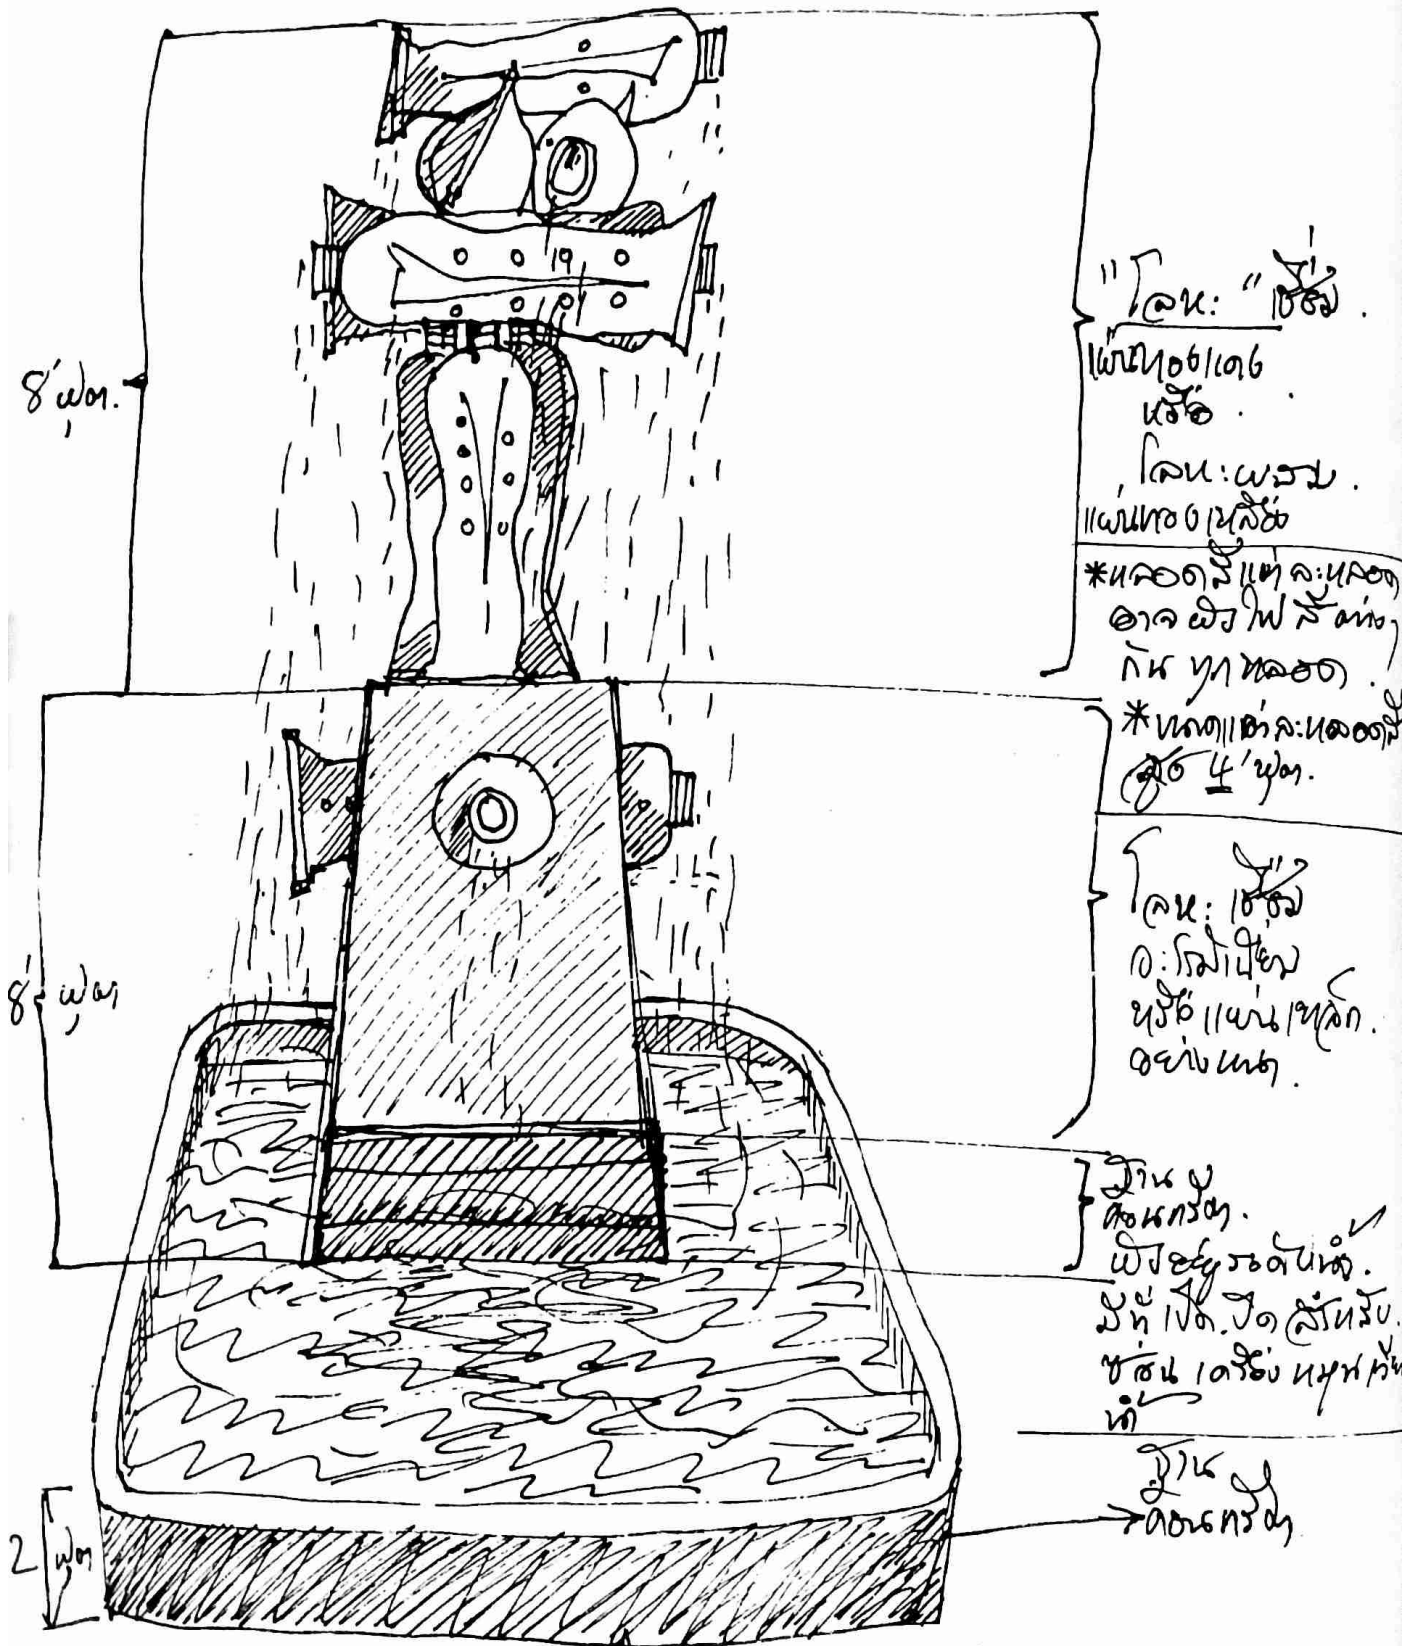 8' ฟุต.
"โลหะ" เชื่อม.
แผ่นทองแดง
หรือ.
โลหะผสม.
แผ่นทองเหลือง
*หลอดสีแต่ละหลอด
อาจฝังไฟสีต่างๆ
กัน ทุกหลอด.
*ขนาดแต่ละหลอดสี
สูง 4' ฟุต.
8' ฟุต
โลหะเชื่อม
อะโรมิเนียม
หรือแผ่นเหล็ก.
อย่างหนา.
ฐาน
คอนกรีต.
ฝังอยู่ระดับน้ำ.
มีที่เปิด.ปิด สำหรับ.
ซ่อนเครื่องหมุนเวียน
น้ำ
ฐาน
คอนกรีต
2 ฟุต